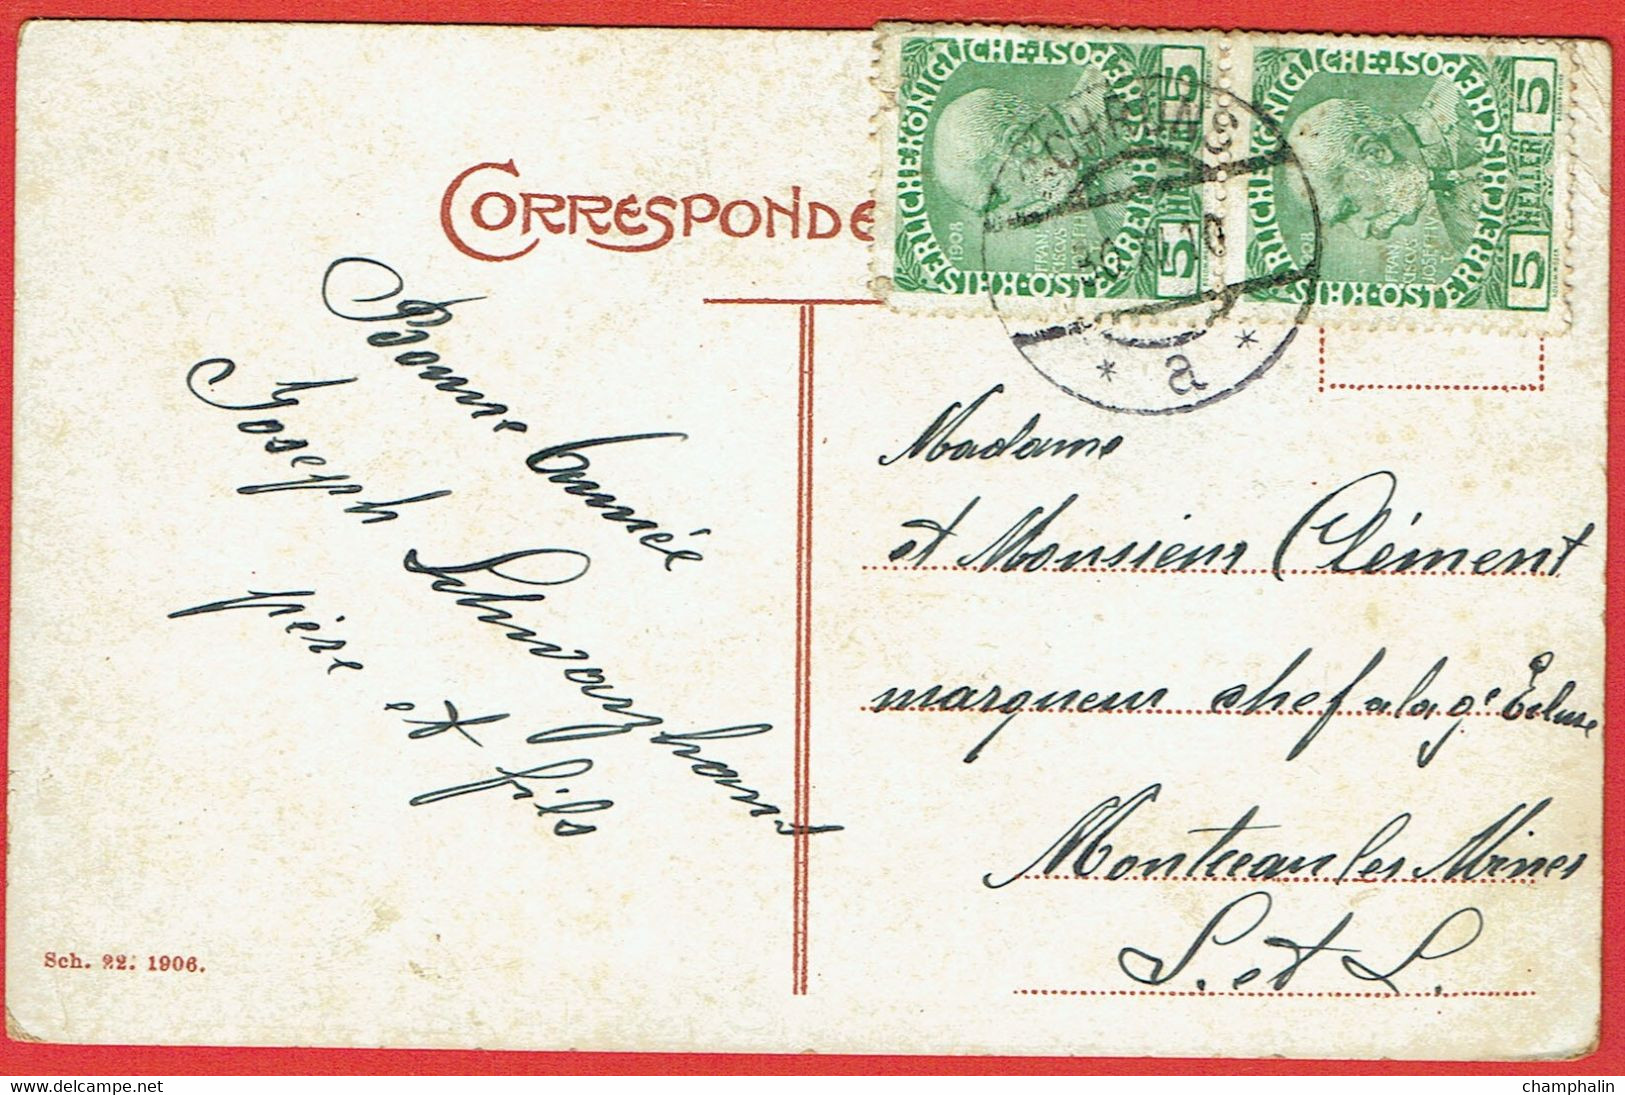 CORRESPONDE
KAISERLICHE KÖNIGLICHE ÖSTERREICHISCHE POST
1908
FRAN
CISCVS
5 HELLER 5
KAISERLICHE KÖNIGLICHE ÖSTERREICHISCHE POST
FRAN
CISCVS
JOSEPH
5 HELLER 5
* a *
Bonne année
Joseph Schwarzhant
père et fils
Madame
et Monsieur Clément
marqueur chef a la gᵉ Ecluse
Montceau les Mines
S. et L.
Sch. 22. 1906.
delcampe.net
champhalin